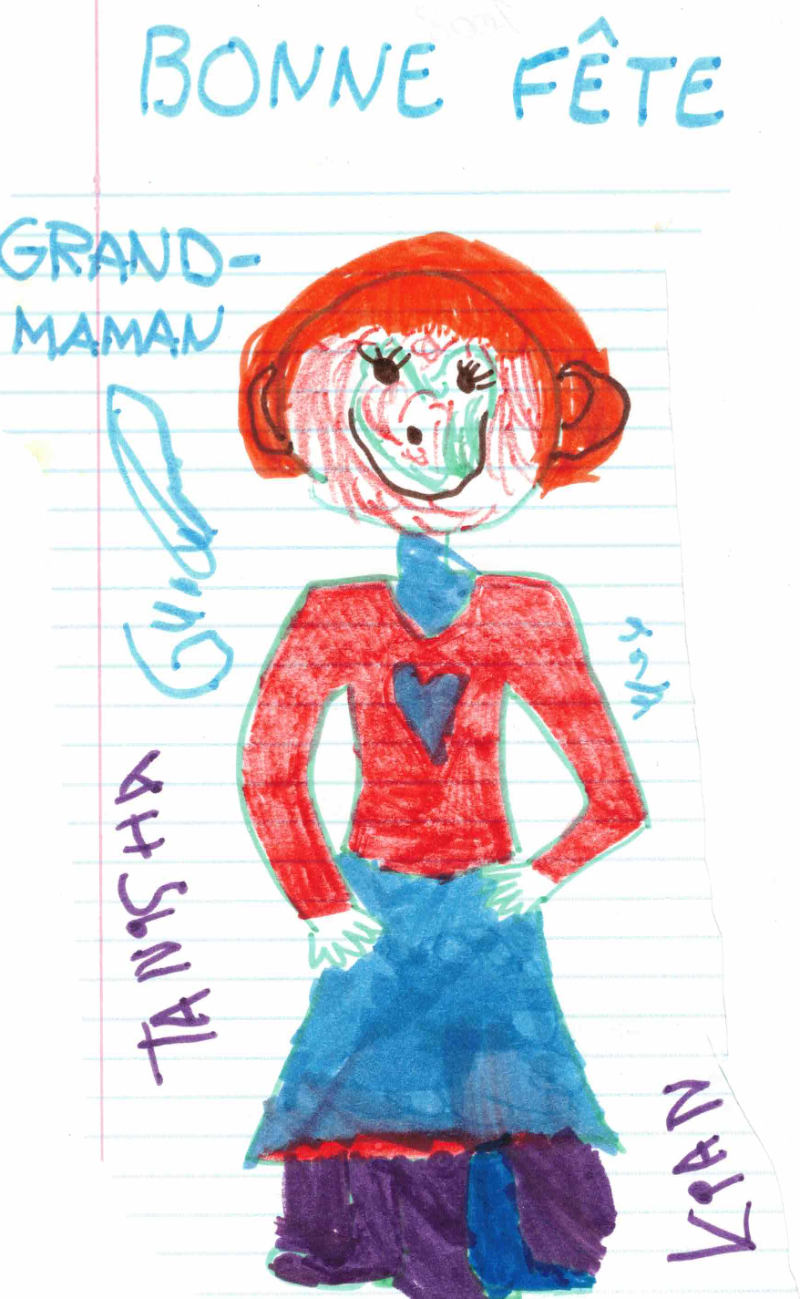 BONNE FÊTE
GRAND-
MAMAN
TANiSHA
KiAN